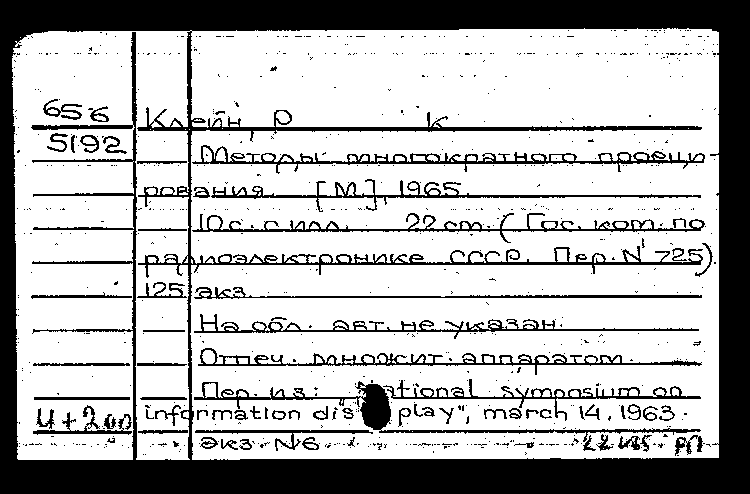 656 Клейн, Р К
5192 Методы многократного проеци-
рования. [М.], 1965.
10 с. с илл. 22 cm. (Гос. ком. по
радиоэлектронике СССР. Пер. N 725)
125 экз.
На обл. авт. не указан.
Отпеч. множит. аппаратом.
Пер. из: "National symposium on
information display", march 14, 1963.
экз. N6